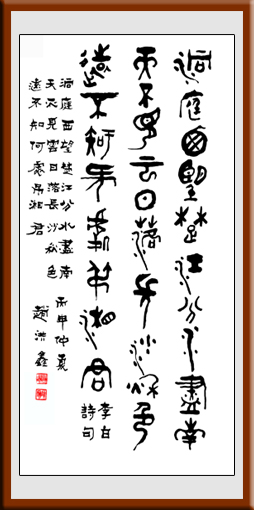 洞庭西望楚江分水盡南
天不見云日落長沙秋色
遠不知何處弔湘君
李白
詩句
洞庭西望楚江分水盡南
天不見雲日落長沙秋色
遠不知何處吊湘君
丙申仲夏
趙洪鑫